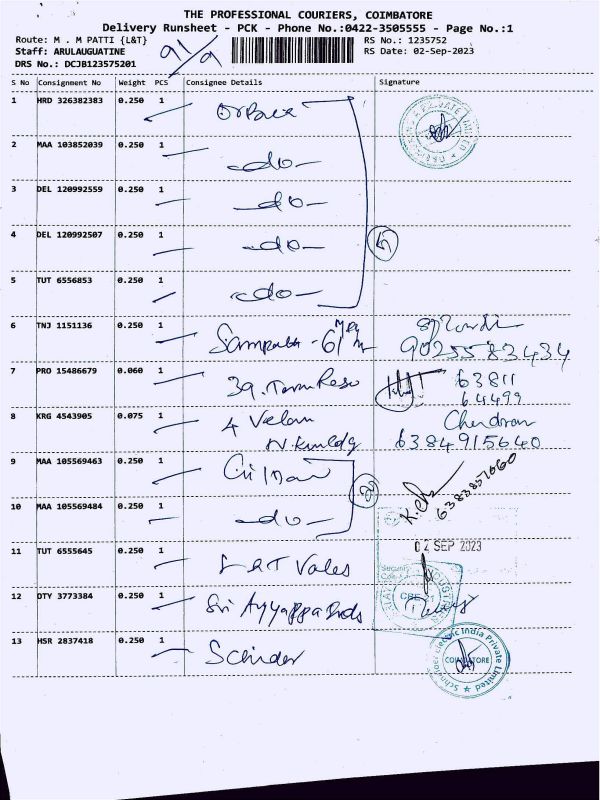 THE PROFESSIONAL COURIERS, COIMBATORE
Delivery Runsheet - PCK - Phone No.:0422-3505555 - Page No.:1
Route: M . M PATTI {L&T} RS No.: 1235752
Staff: ARULAUGUATINE RS Date: 02-Sep-2023
DRS No.: DCJB123575201
S No Consignment No Weight PCS Consignee Details Signature
1 HRD 326382383 0.250 1
2 MAA 103852039 0.250 1 -do-
3 DEL 120992559 0.250 1 -do-
4 DEL 120992507 0.250 1 -do-
5
5 TUT 6556853 0.250 1 -do-
6 TNJ 1151136 0.250 1
9025583434
7 PRO 15486679 0.060 1 63811
64499
8 KRG 4543905 0.075 1 4 Velan Chandran
6384915640
9 MAA 105569463 0.250 1
2
10 MAA 105569484 0.250 1 -do-
02 SEP 2023
11 TUT 6555645 0.250 1 L&T Valves
12 DTY 3773384 0.250 1 Sri Ayyappa
13 HSR 2837418 0.250 1
Electric India Private Limited
COIMBATORE